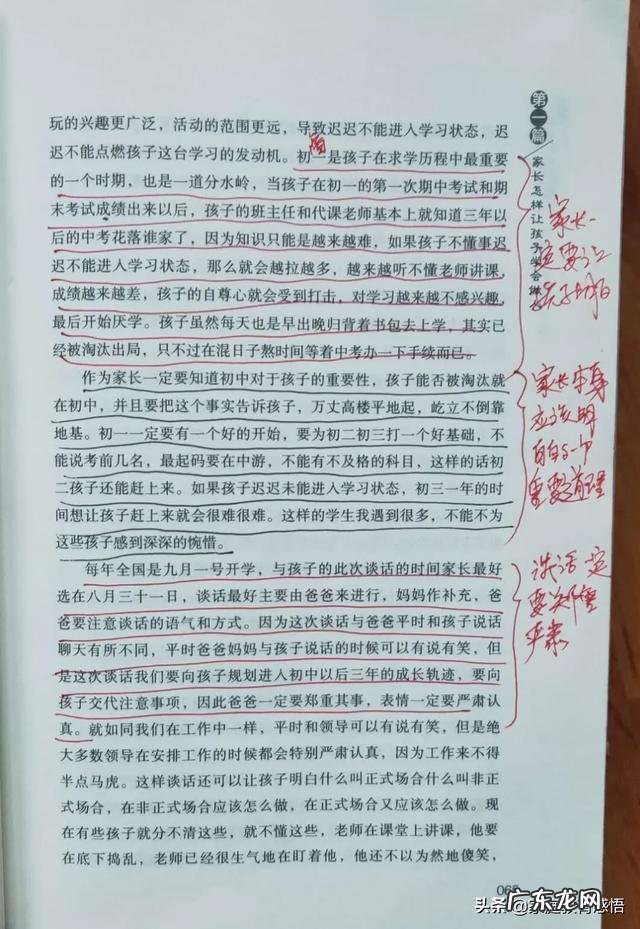 玩的兴趣更广泛，活动的范围更远，导致迟迟不能进入学习状态，迟
迟不能点燃孩子这台学习的发动机。初一是孩子在求学历程中最重要
的一个时期，也是一道分水岭，当孩子在初一的第一次期中考试和期
末考试成绩出来以后，孩子的班主任和代课老师基本上就知道三年以
后的中考花落谁家了，因为知识只能是越来越难，如果孩子不懂事迟
迟不能进入学习状态，那么就会越拉越多，越来越听不懂老师讲课，
成绩越来越差，孩子的自尊心就会受到打击，对学习越来越不感兴趣，
最后开始厌学。孩子虽然每天也是早出晚归背着书包去上学，其实已
经被淘汰出局，只不过在混日子熬时间等着中考办一下手续而已。
作为家长一定要知道初中对于孩子的重要性，孩子能否被淘汰就
在初中，并且要把这个事实告诉孩子，万丈高楼平地起，屹立不倒靠
地基。初一一定要有一个好的开始，要为初二初三打一个好基础，不
能说考前几名，最起码要在中游，不能有不及格的科目，这样的话初
二孩子还能赶上来。如果孩子迟迟未能进入学习状态，初三一年的时
间想让孩子赶上来就会很难很难。这样的学生我遇到很多，不能不为
这些孩子感到深深的惋惜。
每年全国是九月一号开学，与孩子的此次谈话的时间家长最好
选在八月三十一日，谈话最好主要由爸爸来进行，妈妈作补充，爸
爸要注意谈话的语气和方式。因为这次谈话与爸爸平时和孩子说话
聊天有所不同，平时爸爸妈妈与孩子说话的时候可以有说有笑，但
是这次谈话我们要向孩子规划进入初中以后三年的成长轨迹，要向
孩子交代注意事项，因此爸爸一定要郑重其事，表情一定要严肃认
真。就如同我们在工作中一样，平时和领导可以有说有笑，但是绝
大多数领导在安排工作的时候都会特别严肃认真，因为工作来不得
半点马虎。这样谈话还可以让孩子明白什么叫正式场合什么叫非正
式场合，在非正式场合应该怎么做，在正式场合又应该怎么做。现
在有些孩子就分不清这些，就不懂这些，老师在课堂上讲课，他要
在底下捣乱，老师已经很生气地在盯着他，他还不以为然地傻笑，
第一篇
家长怎样让孩子学会
家长一
定要让
孩子
家长本身
应该明
白这个
重要道理
谈话一定
要郑重
严肃
头条
感悟
广东龙网